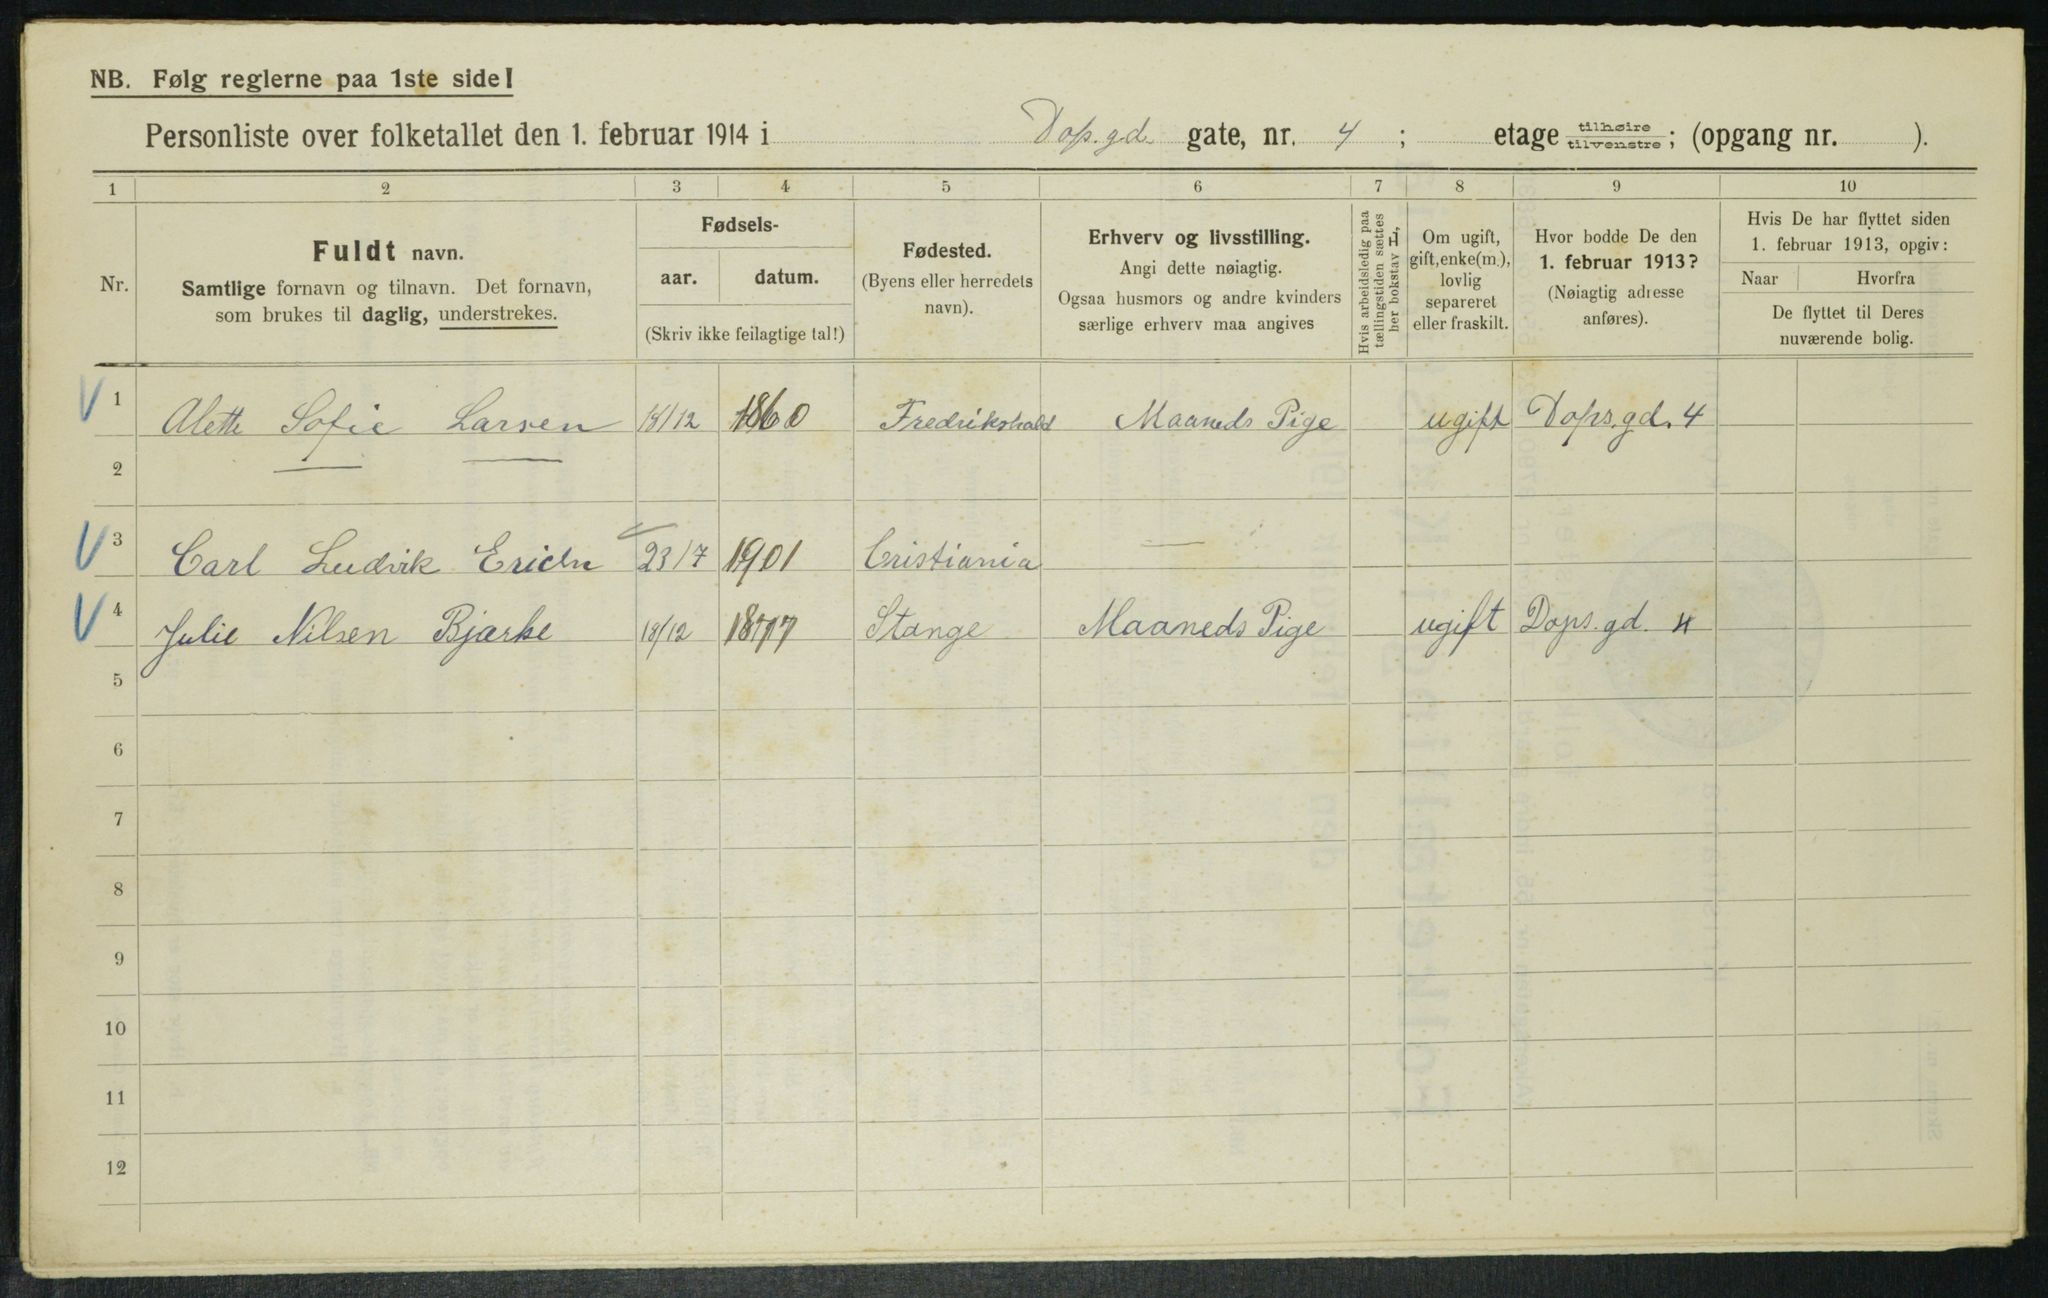 NB. Følg reglerne paa 1ste side!
Personliste over folketallet den 1. februar 1914 i Dops.gd. gate, nr. 4 ; etage tilhøire tilvenstre; (opgang nr. ).
1 2 3 4 5 6 7 8 9 10
Nr.
Fuldt navn.
Samtlige fornavn og tilnavn. Det fornavn,
som brukes til daglig, understrekes.
Fødsels-
aar. datum.
(Skriv ikke feilagtige tal!)
Fødested.
(Byens eller herredets
navn).
Erhverv og livsstilling.
Angi dette nøiagtig.
Ogsaa husmors og andre kvinders
særlige erhverv maa angives
Hvis arbeidsledig paa
tællingstiden sættes
her bokstav L,
Om ugift,
gift, enke(m.),
lovlig
separeret
eller fraskilt.
Hvor bodde De den
1. februar 1913?
(Nøiagtig adresse
anføres).
Hvis De har flyttet siden
1. februar 1913, opgiv:
Naar Hvorfra
De flyttet til Deres
nuværende bolig.
1 Alette Sofie Larsen 18/12 1860 Fredrikshald Maaneds Pige ugift Dops.gd. 4
2
3 Carl Ludvik 23/7 1901 Cristiania —
4 Julie Nilsen Bjærke 18/12 1877 Stange Maaneds Pige ugift Dops.gd. 4
5
6
7
8
9
10
11
12